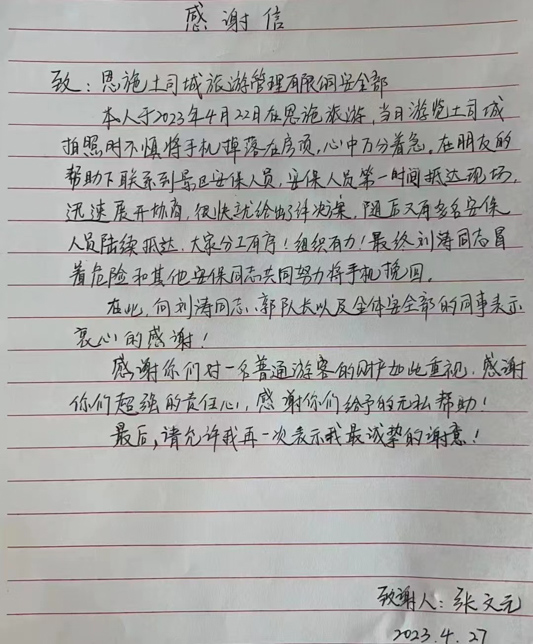 感谢信
致：恩施土司城旅游管理有限公司安全部
本人于2023年4月22日在恩施旅游，当日游览土司城
拍照时不慎将手机掉落在房顶，心中万分着急。在朋友的
帮助下联系到景区安保人员，安保人员第一时间抵达现场，
迅速展开协商，很快就给出了解决案，随后又有多名安保
人员陆续抵达，大家分工有序！组织有力！最终刘涛同志冒
着危险和其他安保同志共同努力将手机挽回。
在此，向刘涛同志、郭队长以及全体安全部的同事表示
衷心的感谢！
感谢你们对一名普通游客的财产如此重视，感谢
你们超强的责任心，感谢你们给予的无私帮助！
最后，请允许我再一次表示我最诚挚的谢意！
致谢人：张文元
2023.4.27